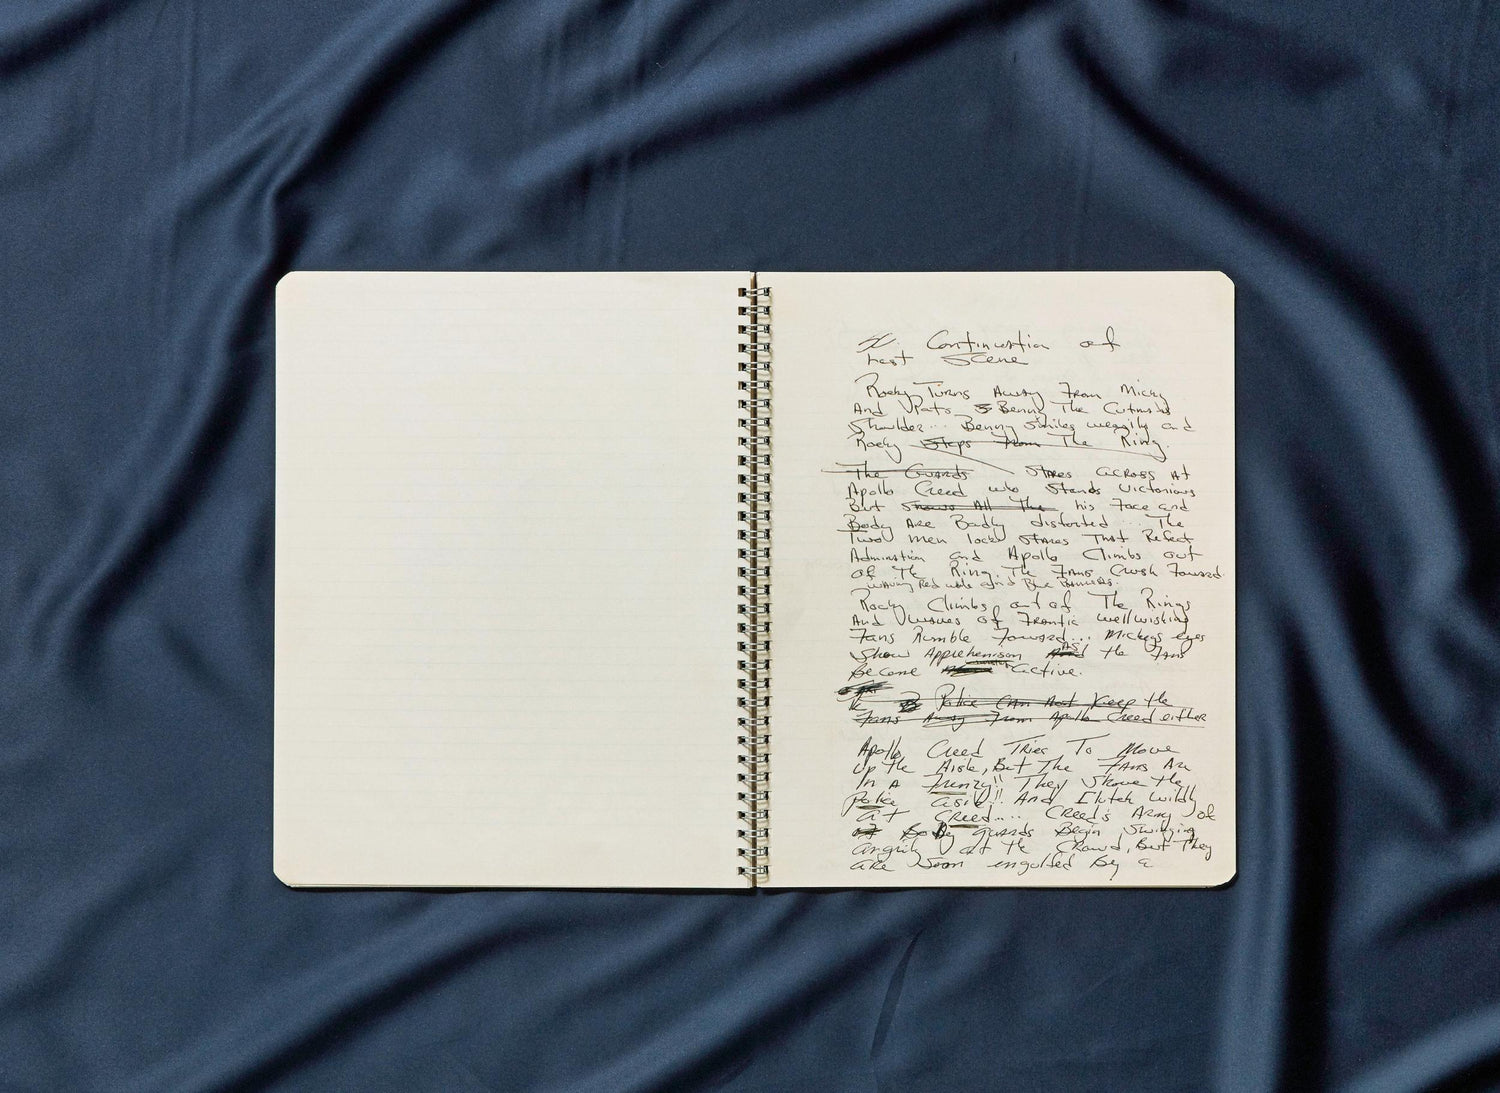 Continuation of
Last Scene
Rocky Turns Away From Micky
And Pats Benny The Cutman's
Shoulder... Benny Smiles weggily and
Rocky Steps From The Ring.
The Guards Stares across At
Apollo Creed who Stands Victorious
But Shows All The his Face and
Body Are Badly distorted... The
Two men lock Stares That Reflect
Admiration and Apollo Climbs out
of The Ring. The Fans Crush Foward.
waving Red white and Blue Banners.
Rocky Climbs out of The Rings
And Waves of Frantic wellwishing
Fans Rumble Foward... Mickeys eyes
Show Apprehenison As the Fans
Become active.
Police Can Not Keep the
Fans Away From Apollo Creed either
Apollo Creed Tries To Move
up the Aisle, But The Fans Are
In A Frenzy!! They Shove the
police aside!! And Clutch wildly
at Creed.... Creed's Army of
Body guards Begin Swinging
angrily at the Crowd, But They
are Soon engolfed By a